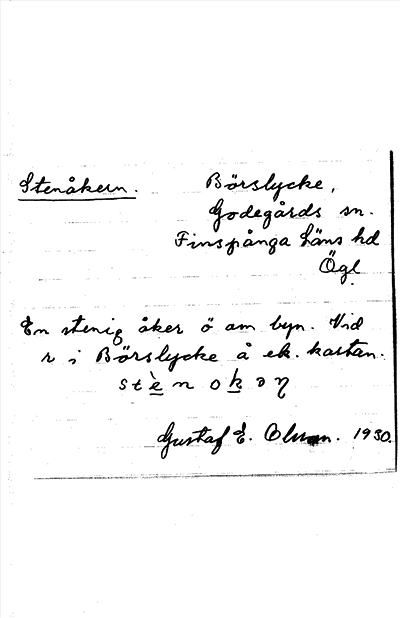 Stenåkern. Börslycke,
Godegårds sn.
Finspånga läns hd
Ögl.
En stenig åker ö om byn. Vid
r i Börslycke å ek. kartan.
stèn okəη
Gustaf E. Olsson. 1930.